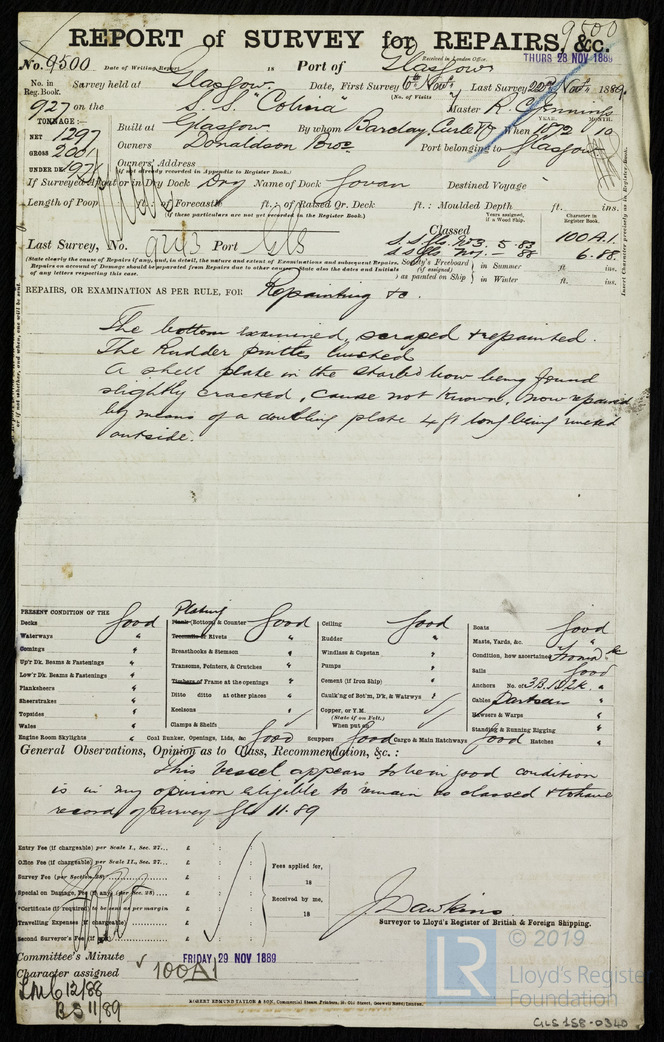 9500
REPORT of SURVEY for REPAIRS, &c.
Received in London Office,
THURS 28 NOV 1889
No. 9500 Date of Writing Report 18 Port of Glasgow
No. in Reg. Book. Survey held at Glasgow Date, First Survey 6th Nov. Last Survey 22nd Nov. 1889.
(No. of Visits )
927 on the S. S. "Colina" Master R. C. Jennings
TONNAGE:— YEAR. MONTH.
NET 1297 Built at Glasgow By whom Barclay, Curle & Co When 1872 10
GROSS 2001 Owners Donaldson Bros Port belonging to Glasgow
UNDER DK Owners' Address
(if not already recorded in Appendix to Register Book.)
If Surveyed Afloat or in Dry Dock Dry Name of Dock Govan Destined Voyage
Length of Poop ft.: of Forecastle ft.; of Raised Qr. Deck ft.: Moulded Depth ft. ins.
(If these particulars are not yet recorded in the Register Book.)
Years assigned, if a Wood Ship. Character in Register Book.
Classed
Last Survey, No. Port Gls S. S. Gls. No3. 5. 83 100 A.1.
S. S. Gls No1. — 88 6. 88.
(State clearly the cause of Repairs if any, and, in detail, the nature and extent of Examinations and subsequent Repairs.
Repairs on account of Damage should be separated from Repairs due to other causes. State also the dates and Initials
of any letters respecting this case.
Society's Freeboard (if assigned) as painted on Ship } in Summer ft. ins.
in Winter ft. ins.
Insert Character precisely as in Register Book.
REPAIRS, OR EXAMINATION AS PER RULE, FOR Repainting &c.
The bottom examined, scraped & repainted.
The Rudder pintles bushed
A shell plate in the starbd bow being found
slightly cracked, cause not known, now repaired
by means of a doubling plate 4 ft long being riveted
outside.
PRESENT CONDITION OF THE
Decks Good
Waterways "
Comings "
Up'r Dk. Beams & Fastenings "
Low'r Dk. Beams & Fastenings "
Planksheers "
Sheerstrakes "
Topsides "
Wales "
Engine Room Skylights "
Plating
Plank (Bottom) & Counter Good
Treenails & Rivets "
Breasthooks & Stemson "
Transoms, Pointers, & Crutches "
Timbers of Frame at the openings "
Ditto ditto at other places "
Keelsons "
Clamps & Shelfs
Coal Bunker, Openings, Lids, &c Good
Ceiling Good
Rudder "
Windlass & Capstan "
Pumps "
Cement (if Iron Ship) "
Caulk'g of Bot'm, D'k, & Watrwys
Copper, or Y.M.
(State if on Felt.)
When put on
Scuppers Good Cargo & Main Hatchways Good
Boats Good
Masts, Yards, &c. "
Condition, how ascertained
Sails Good
Anchors No. of 3B. 1S. 2K. "
Cables
Hawsers & Warps "
Standing & Running Rigging "
Hatches "
General Observations, Opinion as to Class, Recommendation, &c.:
This vessel appears to be in good condition
is in my opinion eligible to remain as classed & to have
record of survey Gls 11.89
Entry Fee (if chargeable) per Scale I., Sec. 27... £ : :
Office Fee (if chargeable) per Scale II., Sec. 27... £ : :
Survey Fee (per Section 28) £ : :
Special on Damage, Fee (if any) (per Sec. 28) £ : :
*Certificate (if required) to be sent as per margin
Travelling Expenses (if chargeable) £ : :
Second Surveyor's Fee (if any) £ : :
Fees applied for,
18
Received by me,
18
J. Dawkins.
Surveyor to Lloyd's Register of British & Foreign Shipping.
Committee's Minute FRIDAY 29 NOV 1889
Character assigned 100A1
LMC 12/88
BS 11/89
ROBERT EDMUND TAYLOR & SON, Commercial Steam Printers, 19, Old Street, Goswell Road, London.
LR
© 2019
Lloyd's Register
Foundation
GLS 158-0340